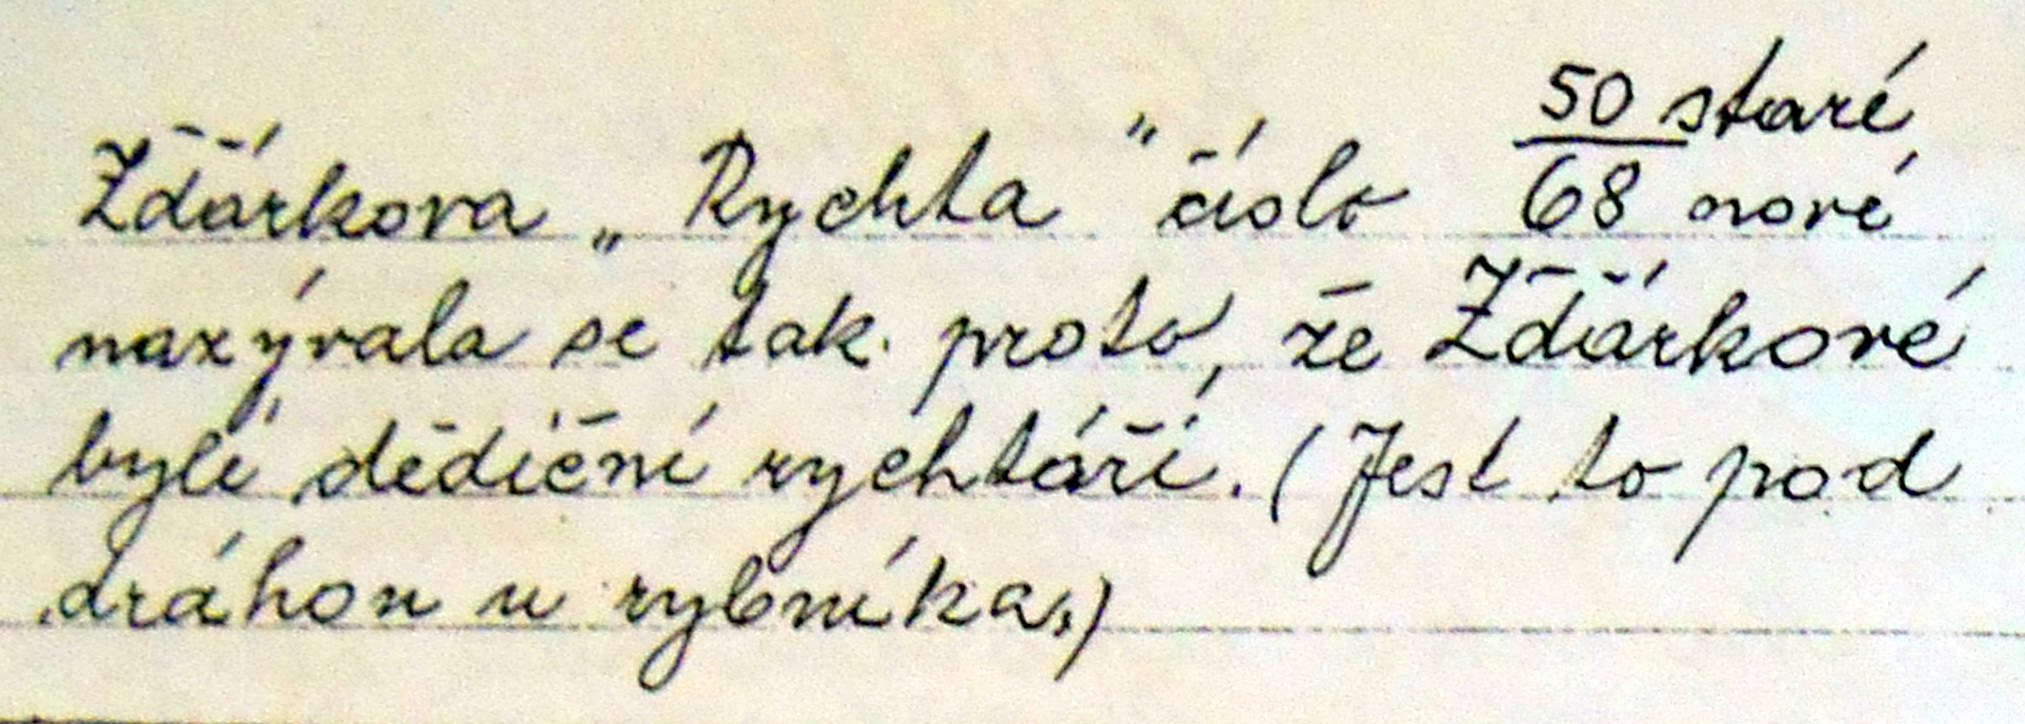 50 staré
Žďárkova „Rychta" číslo 68 nové
nazývala se tak proto, že Žďárkové
byli dědiční rychtáři. (Jest to pod
dráhou u rybníka.)